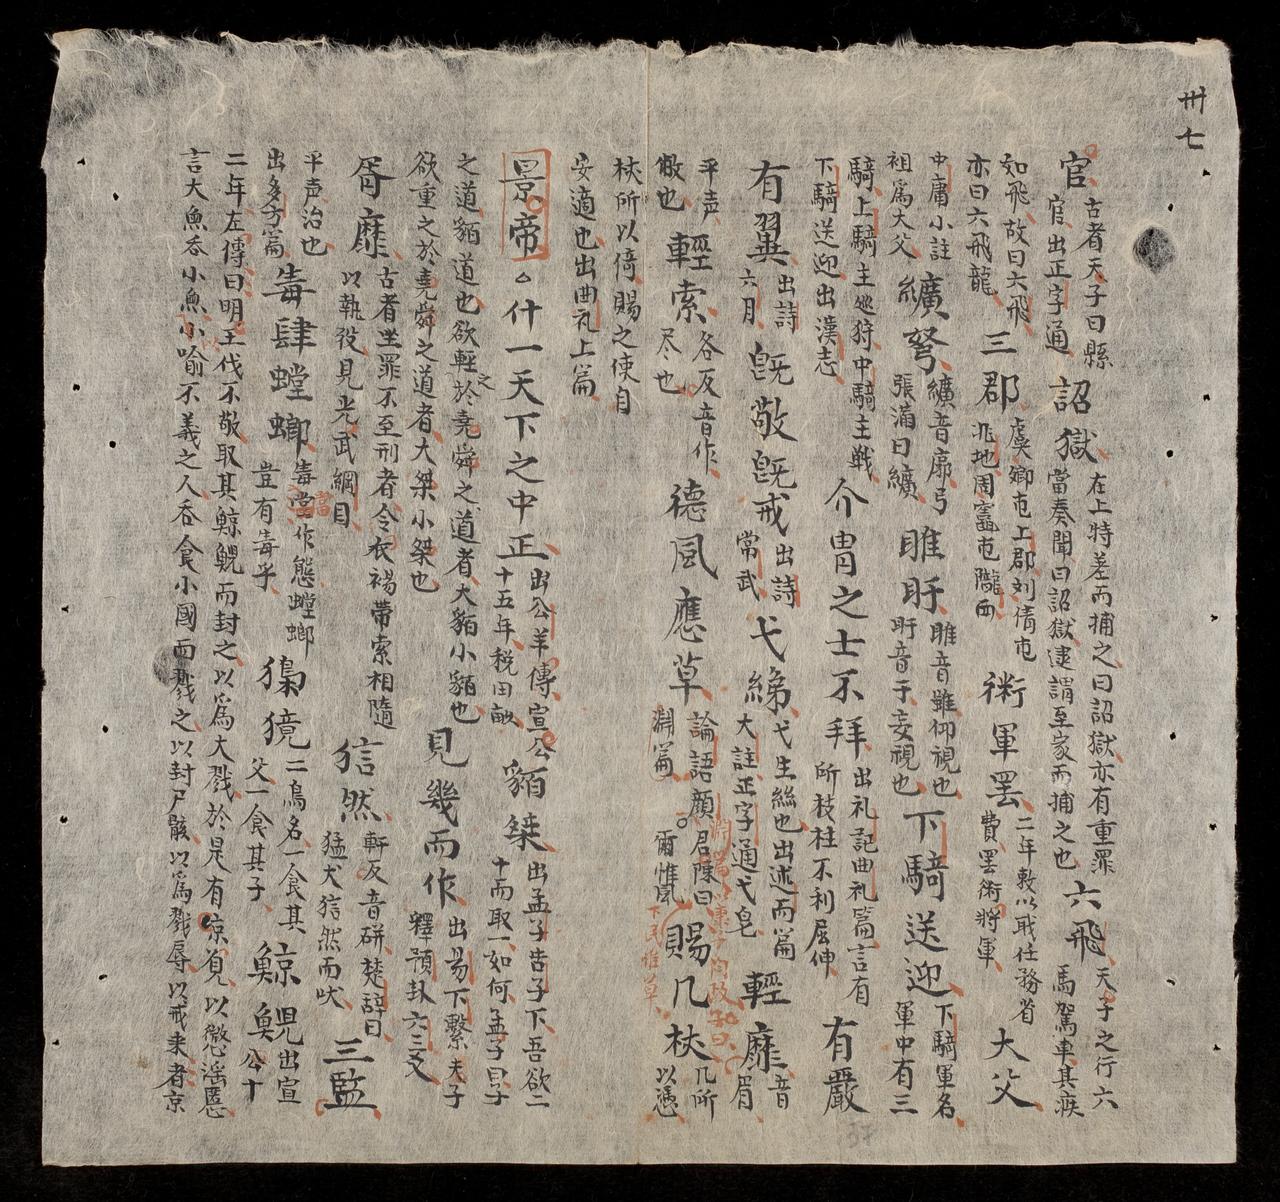 卅七
官 古者天子曰縣
官出正字通
詔獄 在上特差而捕之曰詔獄亦有重罪
當奏聞曰詔獄逮謂至家而捕之也
六飛 天子之行六
馬駕車其疾
如飛故曰六飛
亦曰六飛龍
三郡 虞鄉屯上郡刘倩屯
北地周竈屯隴西
術軍罷 二年敕以职任務省
費罷術將軍
大父
中庸小註
祖爲大父
纊弩 纊音廓弓
張滿曰纊
睢盱 睢音雖仰視也
盱音于妄視也
下騎送迎 下騎軍名
軍中有三
騎上騎主巡狩中騎主戰
下騎送迎出漢志
介冑之士不拜 出礼記曲礼篇言有
所枝柱不利屈伸
有嚴
有翼 出詩
六月
旣敬旣戒 出詩
常武
弋綈 弋生絲也出述而篇
大註正字通弋皂
輕靡 音
眉
平声
散也
輕索 各反音作
尽也
德風應草 論語顔
淵篇
君陳曰
爾惟風
下民惟草
賜几杖 几所
以憑
杖所以倚賜之使自
安適也出曲礼上篇
景帝。什一天下之中正 出公羊傳宣公
十五年税田畝
貊桀 出孟子告子下吾欲二
十而取一如何孟子曰子
之道貊道也欲輕之於堯舜之道者大貊小貊也
欲重之於堯舜之道者大桀小桀也
見幾而作 出易下繫夫子
釋預卦六二爻
胥靡 古者坐罪不至刑者令衣褐帶索相隨
以執役見光武綱目
狺然 軒反音硏楚辞曰
猛犬狺然而吠
三監
平声治也
出多方篇
毒肆螳螂 毒當作態螳螂
豈有毒乎
梟獍 二鳥名一食其
父一食其子
鯨鯢 出宣
公十
二年左傳曰明王伐不敬取其鯨鯢而封之以爲大戮於是有京觀以懲淫慝
言大魚呑小魚以喻不義之人呑食小國而戮之以封尸骸以爲戮辱以戒来者京